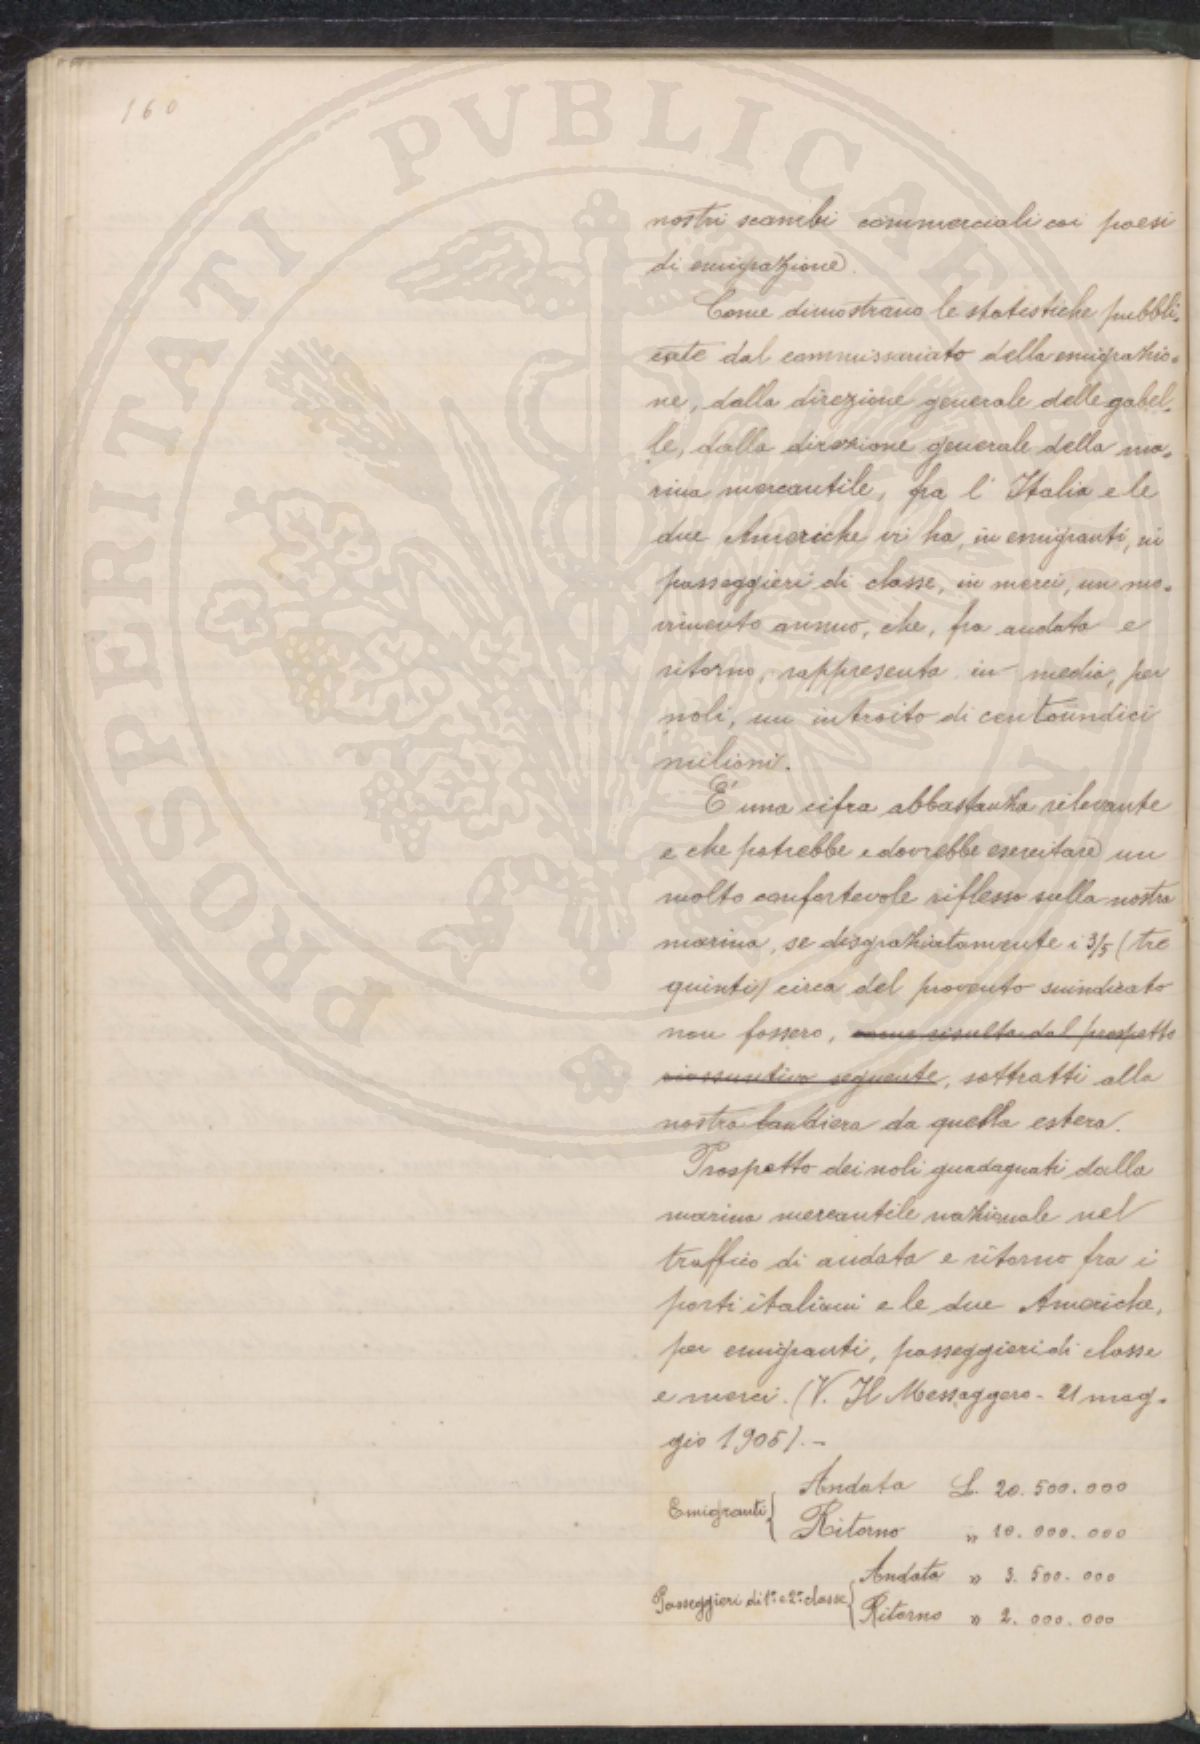 160
PROSPERITATI PUBLICAE
nostri scambi commerciali coi paesi
di emigrazione.
Come dimostrano le statistiche pubbli-
cate dal commissariato della emigrazio-
ne, dalla direzione generale delle gabel-
le, dalla direzione generale della ma-
rina mercantile, fra l'Italia e le
due Americhe vi ha, in emigranti, in
passeggieri di classe, in merci, un mo-
vimento annuo, che, fra andata e
ritorno, rappresenta in media, per
noli, un introito di centoundici
milioni.
E' una cifra abbastanza rilevante
e che potrebbe e dovrebbe esercitare un
molto confortevole riflesso sulla nostra
marina, se disgraziatamente i 3/5 (tre
quinti) circa del provento suindicato
non fossero, come risulta dal prospetto
riassuntivo seguente, sottratti alla
nostra bandiera da quella estera.
Prospetto dei noli guadagnati dalla
marina mercantile nazionale nel
traffico di andata e ritorno fra i
porti italiani e le due Americhe,
per emigranti, passeggieri di classe
e merci. (V. Il Messaggero - 21 mag-
gio 1905). -
Emigranti { Andata L. 20.500.000
Ritorno " 10.000.000
Passeggieri di 1ª e 2ª classe { Andata " 3.500.000
Ritorno " 2.000.000